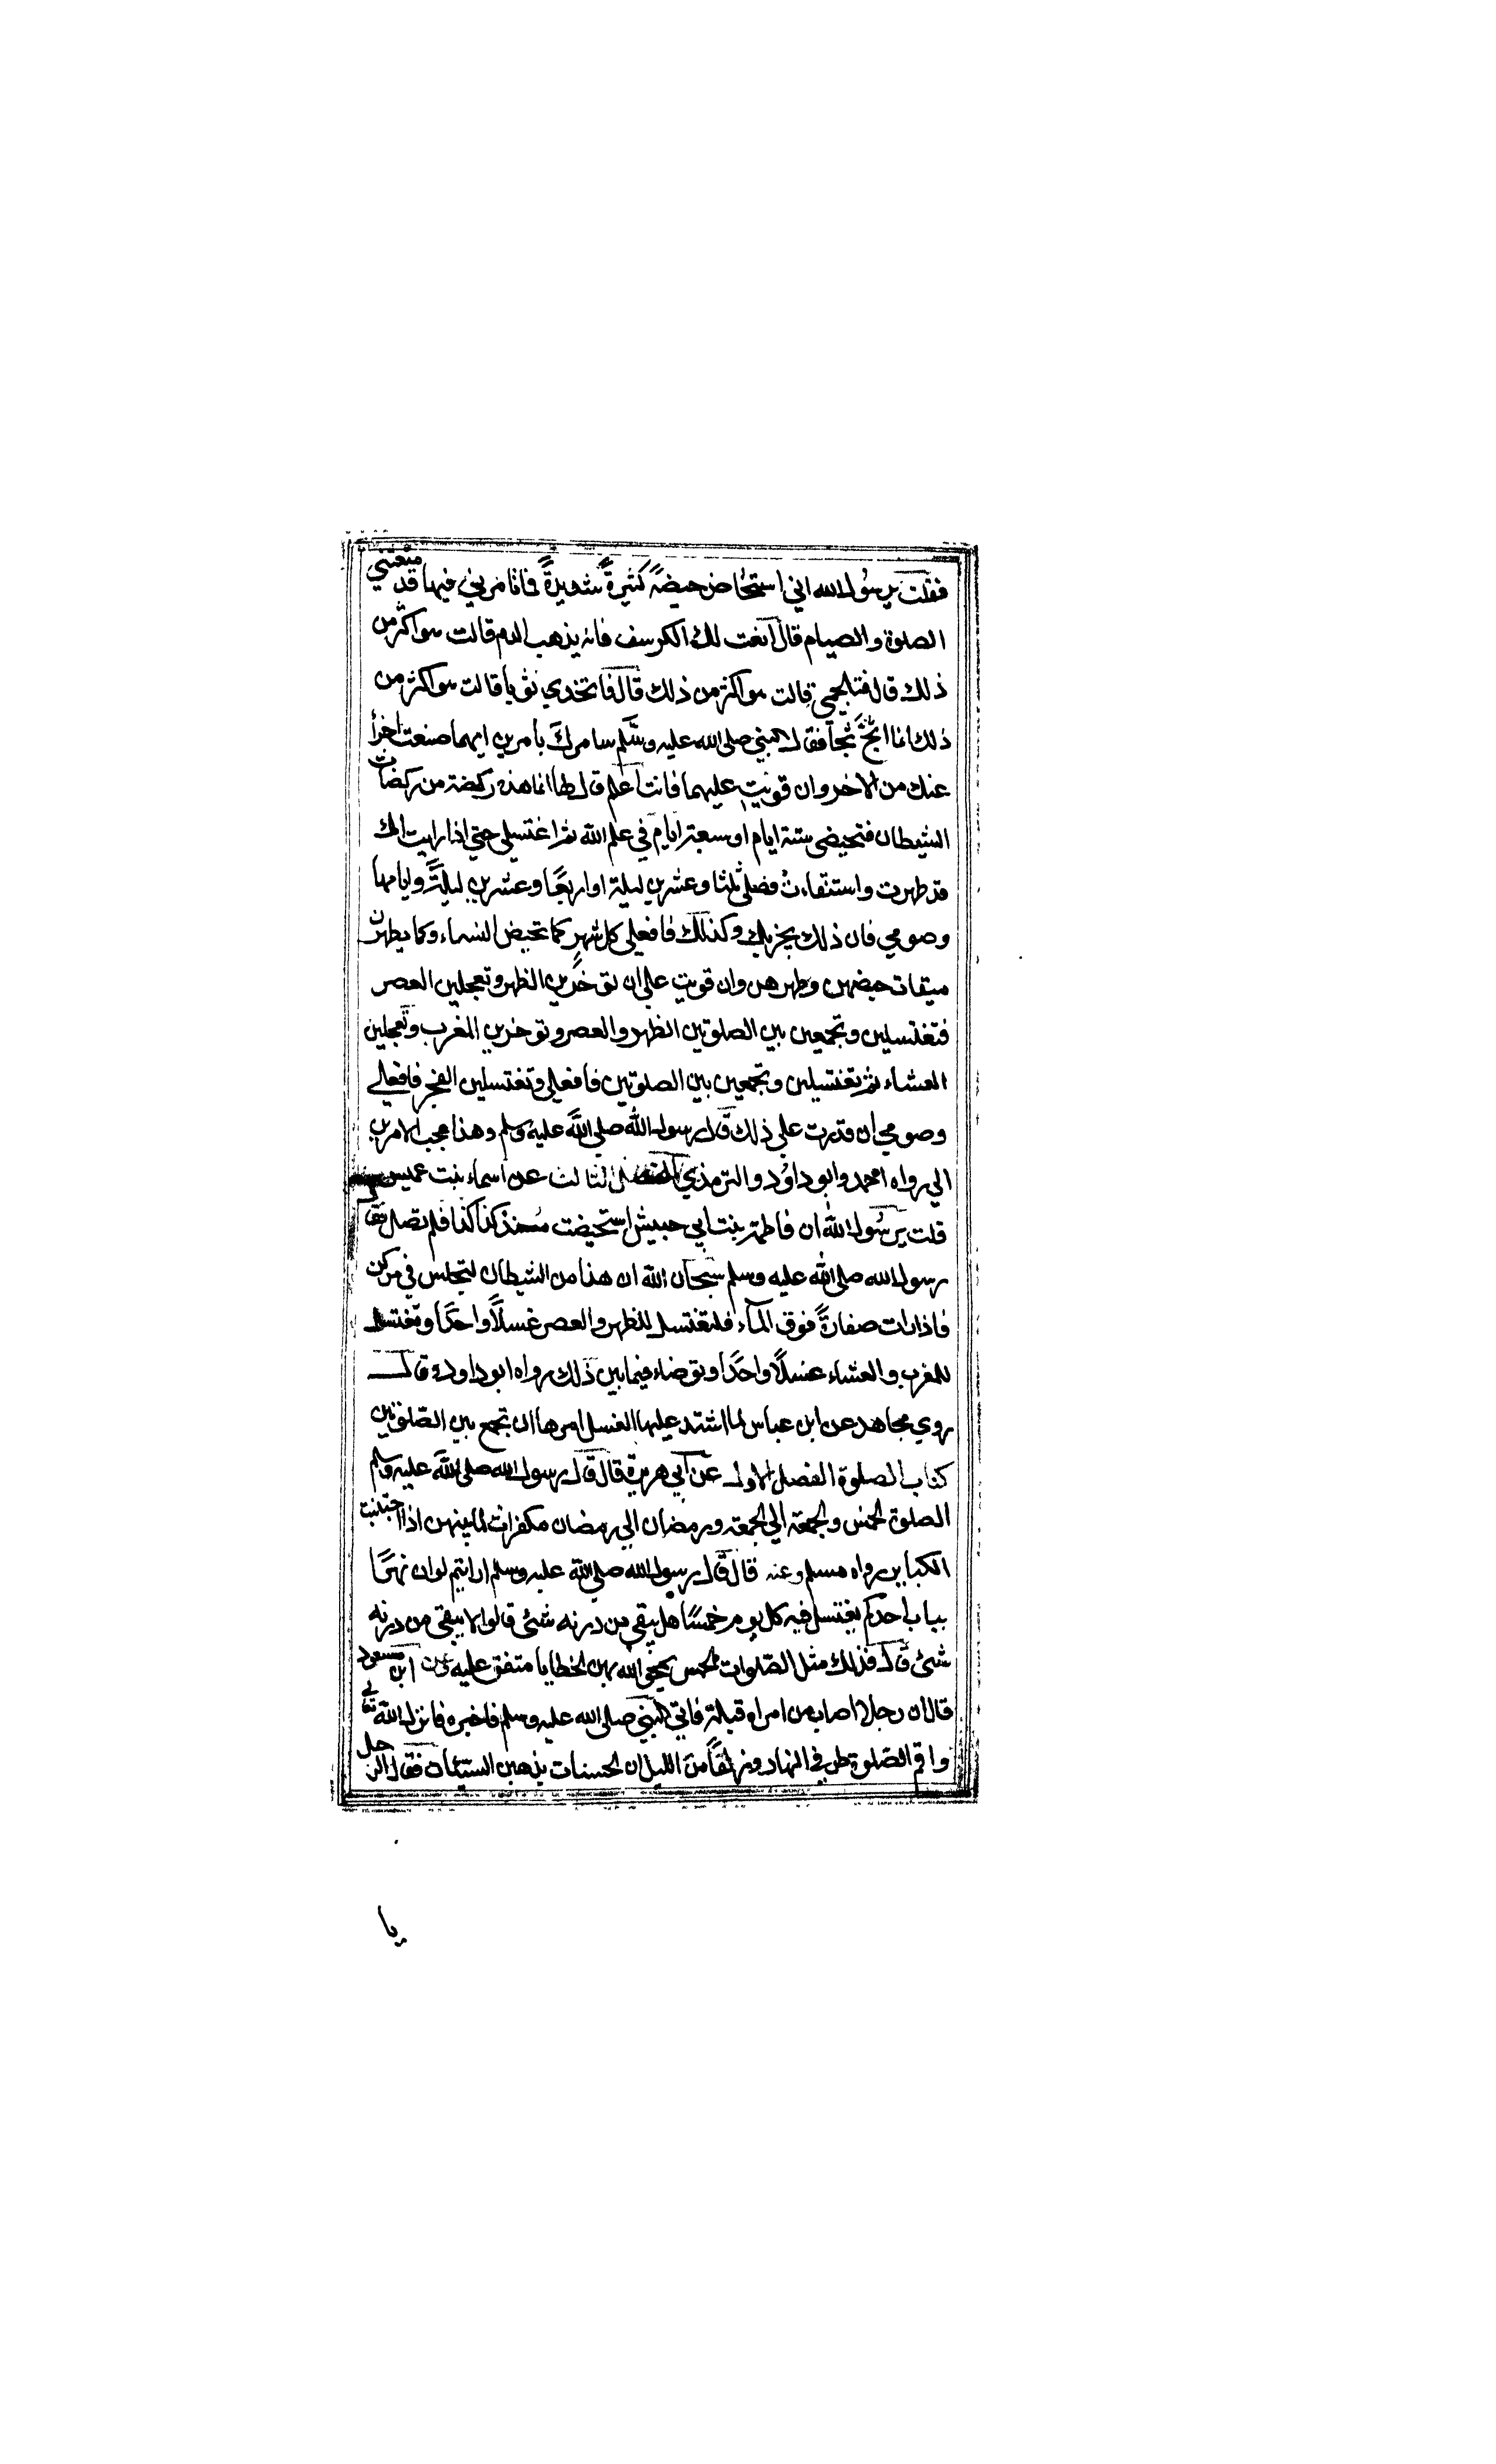 فقلت يرسول الله اني استحاض حيضةً كثيرةً شديدةً فما تامرني فيها قد منعتني
الصلوة والصيام قال انعت لك الكرسف فانه يذهب الدم قالت هو اكثر من
ذلك قال فتلجمي قالت هو اكثر من ذلك قال فاتخذي ثوبا قالت هو اكثر من
ذلك انما اثج ثجا فقال النبي صلى الله عليه وسلم سامرك بامرين ايهما صنعت اجزأ
عنك من الاخر وان قويت عليهما فانت اعلم قال لها انما هذه ركضة من ركضات
الشيطان فتحيضي ستة ايام او سبعة ايام في علم الله ثم اغتسلي حتي اذا رايت انك
قد طهرت واستنقاءت فصلي ثلثا وعشرين ليلة او اربعًا وعشرين ليلةً وايامها
وصومي فان ذلك يجزيك وكذلك فافعلي كل شهر كما تحيض النساء وكما يطهرن
ميقات حيضهن وطهرهن وان قويت علي ان توخرين الظهر وتعجلين العصر
فتغتسلين وتجمعين بين الصلوتين الظهر والعصر وتوخرين المغرب وتعجلين
العشاء ثم تغتسلين وتجمعين بين الصلوتين فافعلي وتغتسلين الفجر فافعلي
وصومي ان قدرت علي ذلك قال رسول الله صلي الله عليه وسلم وهذا عجب الامرين
الي رواه احمد وابو داؤد والترمذي الفصل الثالث عن اسماء بنت عميس
قلت يرسول الله ان فاطمة بنت ابي حبيش استحيضت منذ كذا كذا فلم تصل فقا
رسول الله صلي الله عليه وسلم سبحان الله ان هذا من الشيطان لتجلس في مركن
فاذا رات صفارةً فوق المآء فلتغتسل للظهر والعصر غسلاً واحدًا وتغتسل
للمغرب والعشاء غسلاً واحدًا وتوضاء فيما بين ذلك رواه ابو داود وقال
روي مجاهد عن ابن عباس لما اشتد عليها الغسل امرها ان تجمع بين الصلوتين
كتاب الصلوة الفصل الاول عن ابي هريرة قال قال رسول الله صلي الله عليه وسلم
الصلوة الخمس والجمعة الي الجمعة ورمضان الي رمضان مكفرات لما بينهن اذا اجتنبت
الكباير رواه مسلم وعنه قال قال رسول الله صلي الله عليه وسلم ارايتم لو ان نهرًا
بباب احدكم يغتسل فيه كل يوم خمسًا هل يبقي من درنه شئ قالوا لا يبقي من درنه
شئ قال فذلك مثل الصلوات الخمس يمحو الله بهن الخطايا متفق عليه وعن ابن مسعود
قال ان رجلا اصاب من امراه قبلة فاتي النبي صلي الله عليه وسلم فاخبره فانزل الله تعالي
واقم الصلوة طرفي النهار وزلفًا من الليل ان الحسنات يذهبن السيئات فقال الرجل
يا